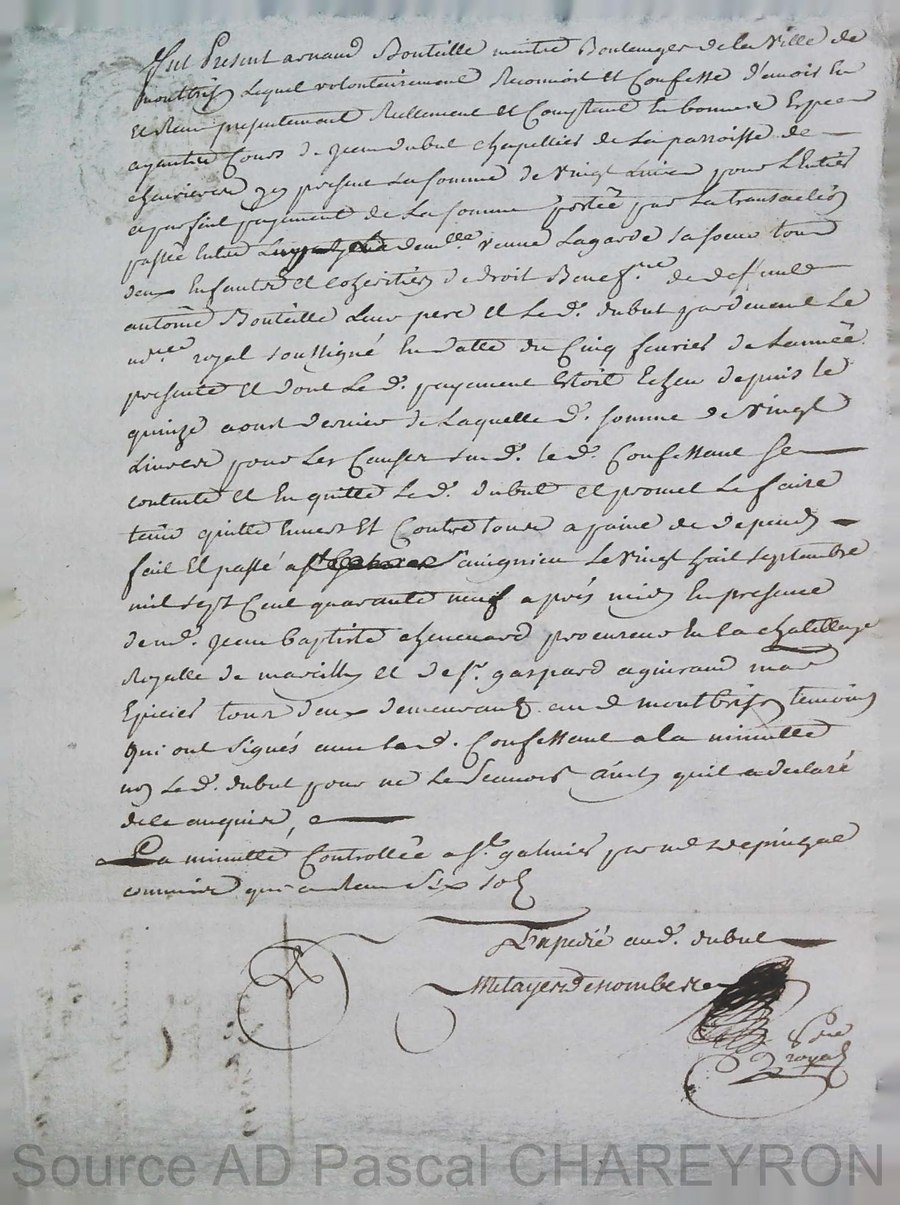 fut Present arnaud Bouteille maitre Boulanger de la ville de
montbrison Lequel volontairement Reconnoit et Confesse d'avoir Eu
et Receu presentement Reellement et Comptent En bonnes Especes
ayantes Cours de jean dubut chapellier de La parroisse de
chevrieres present La somme de vingt Livres pour L'Entier
et parfait payement de La somme portée par La transaction
passée Entre demlle veuve Lagarde sa soeur tous
deux Enfants et cohéritiers de droit Benefre de deffunt
antoine Bouteille Leur pere et Le d. dubut pardevant Le
nore royal soussigné En datte du Cinq fevrier de L'année
presente et dont Le d. payement Etoit Echeu depuis le
quinze aoust dernier de Laquelle d. somme de vingt
Livres pour Les Causes sud. le d. Confessant se
contente et En quitte Le d. dubut et promet Le faire
tenir quitte Envers Et Contre tous a paine de depends
fait Et passé a St Le vingt huit septembre
mil sept Cent quarante neuf après midy En presence
de me. jean baptiste chenevard procureur En la chatellenie
Royalle de marcilly et de sr. gaspard aguiraud mar
Epicier tous deux demeurants aud montbrison temoins
qui ont signés avec le d. Confessant a la minutte
non Le d. dubut pour ne Le scavoir ainsy qu'il a declaré
de ce enquis,
La minutte Controllée a St galmier par me depinzal
commis qui a Receu six sols
Expedié aud. dubut
Metayer denombre
nre
royal
Source AD Pascal CHAREYRON